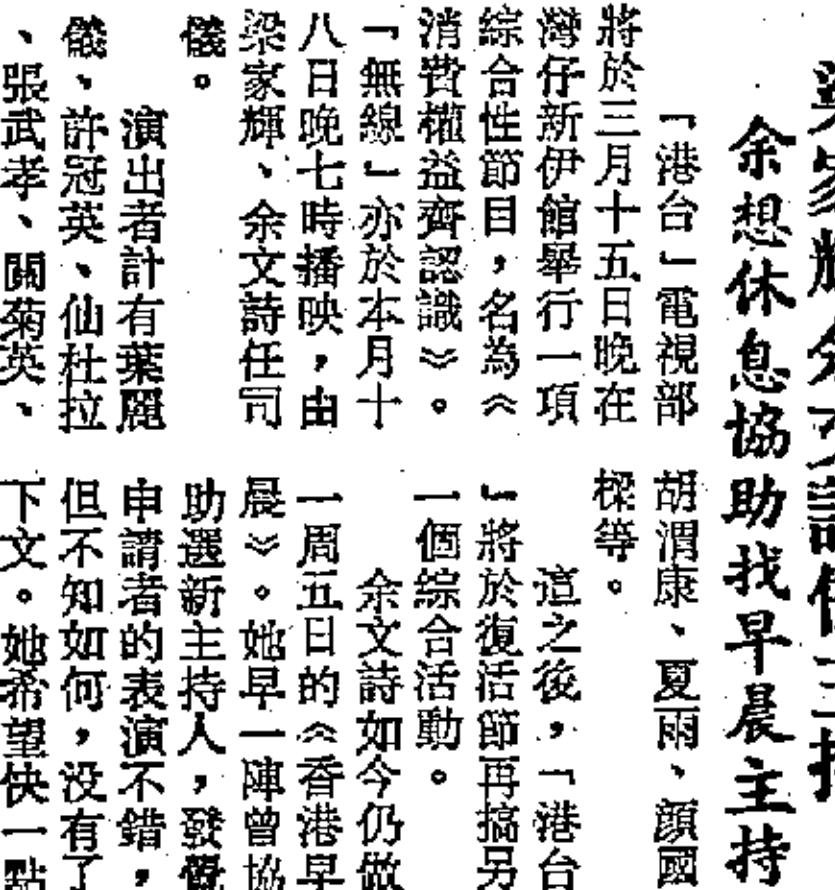 余想休息協助找早晨主持
「港台」電視部
將於三月十五日晚在
灣仔新伊館舉行一項
綜合性節目，名為《
消費權益齊認識》。
「無線」亦於本月十
八日晚七時播映，由
梁家輝、余文詩任司
儀。
演出者計有葉麗
儀、許冠英、仙杜拉
、張武孝、關菊英、
胡渭康、夏雨、顏國
樑等。
這之後，「港台
」將於復活節再搞另
一個綜合活動。
余文詩如今仍做
一周五日的《香港早
晨》。她早一陣曾協
助選新主持人，發覺
申請者的表演不錯，
但不知如何，沒有了
下文。她希望快一點